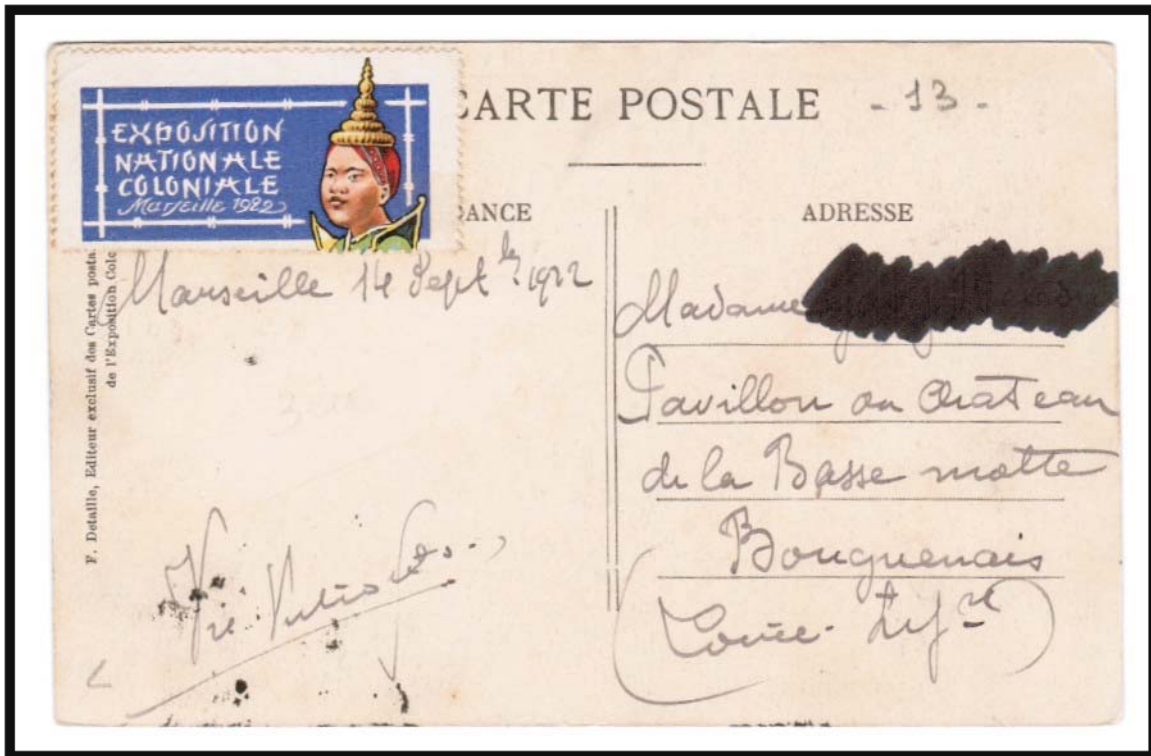 CARTE POSTALE - 13 -
EXPOSITION
NATIONALE
COLONIALE
Marseille 1922
DANCE
ADRESSE
F. Detaille, Editeur exclusif des Cartes posta
de l'Exposition Colo
Marseille 14 Septbre 1922
Madame
Pavillon au Chateau
de la Basse motte
Bouguenais
Loire-Infre